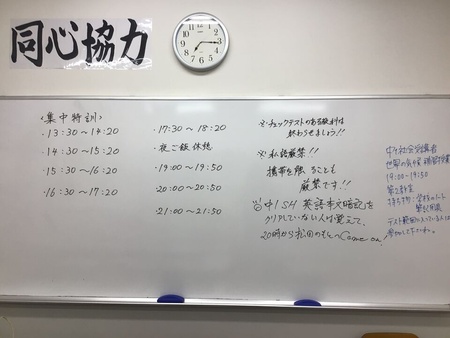 同心協力
〈集中特訓〉
・13:30〜14:20
・14:30〜15:20
・15:30〜16:20
・16:30〜17:20
・17:30〜18:20
・夜ご飯休憩
・19:00〜19:50
・20:00〜20:50
・21:00〜21:50
※チェックテストのある教科は
終わらせましょう!!
※私語厳禁!!
携帯を触ることも
厳禁です!!
中1SH 英語本文暗記を
クリアしていない人は覚えて、
20時から松田のもとへCome on!
中1社会受講者
世界の気候 補習授業
19:00〜19:50
持ち物:学校のノート
筆記用具
テスト範囲に入っている人は
参加して下さいね。